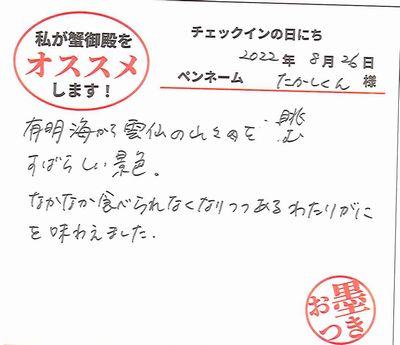 私が蟹御殿を
オススメ
します！
チェックインの日にち
2022年 8月 26日
ペンネーム たかしくん 様
有明海から雲仙の山々を眺む
すばらしい景色。
なかなか食べられなくなりつつあるわたりがに
を味わえました.
お墨つき